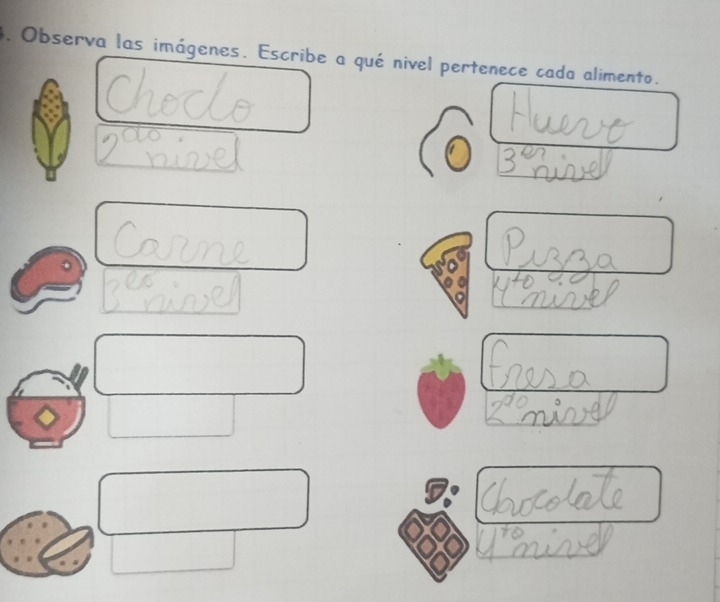 . Observa las imágenes. Escribe a qué nivel pertenece cada alimento.
Choclo
2do nivel
Huevo
3er nivel
Carne
3er nivel
Pizza
4to nivel
fresa
2do nivel
Chocolate
4to nivel